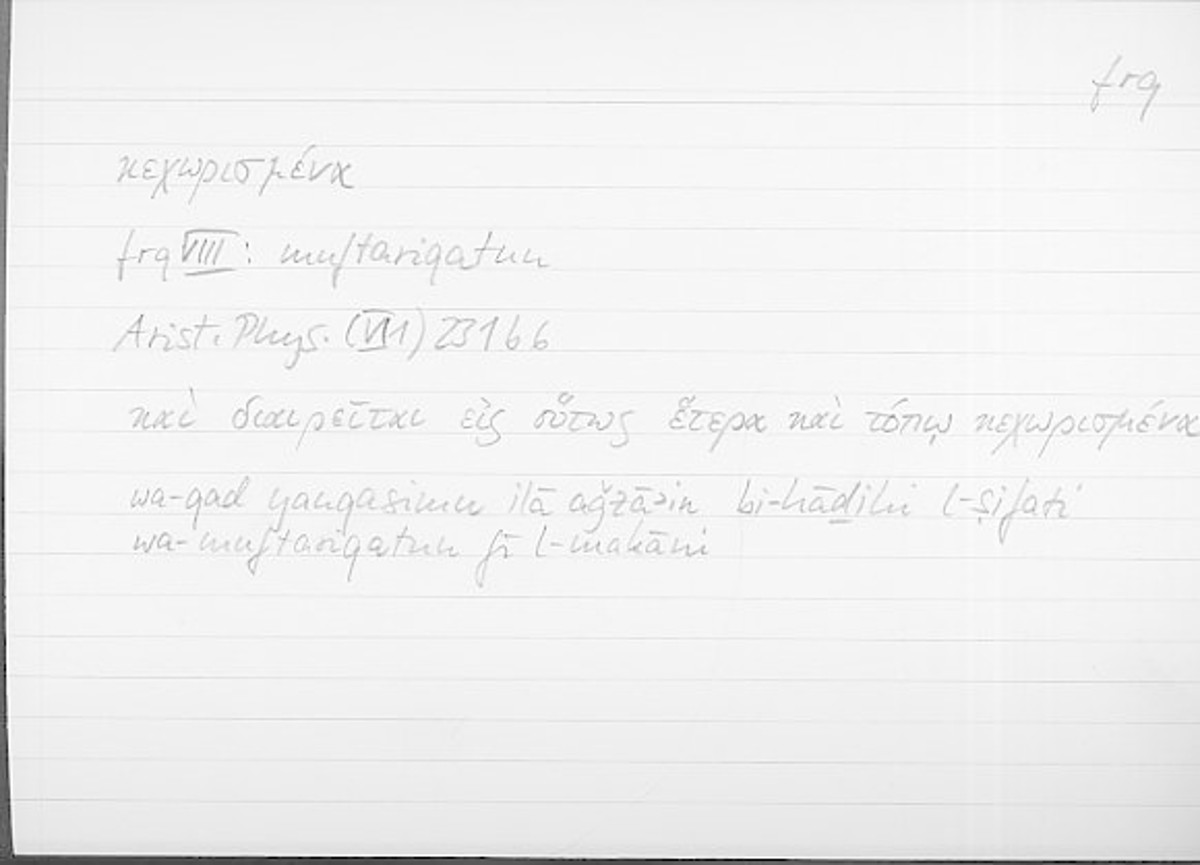 frq
κεχωρισμένα
frq VIII: muftariqatun
Arist. Phys. (VI 1) 231 b 6
καὶ διαιρεῖται εἰς οὕτως ἕτερα καὶ τόπῳ κεχωρισμένα
wa-qad yanqasimu ilā aǧzāʾin bi-hāḏihi l-ṣifati
wa-muftariqatun fī l-makāni